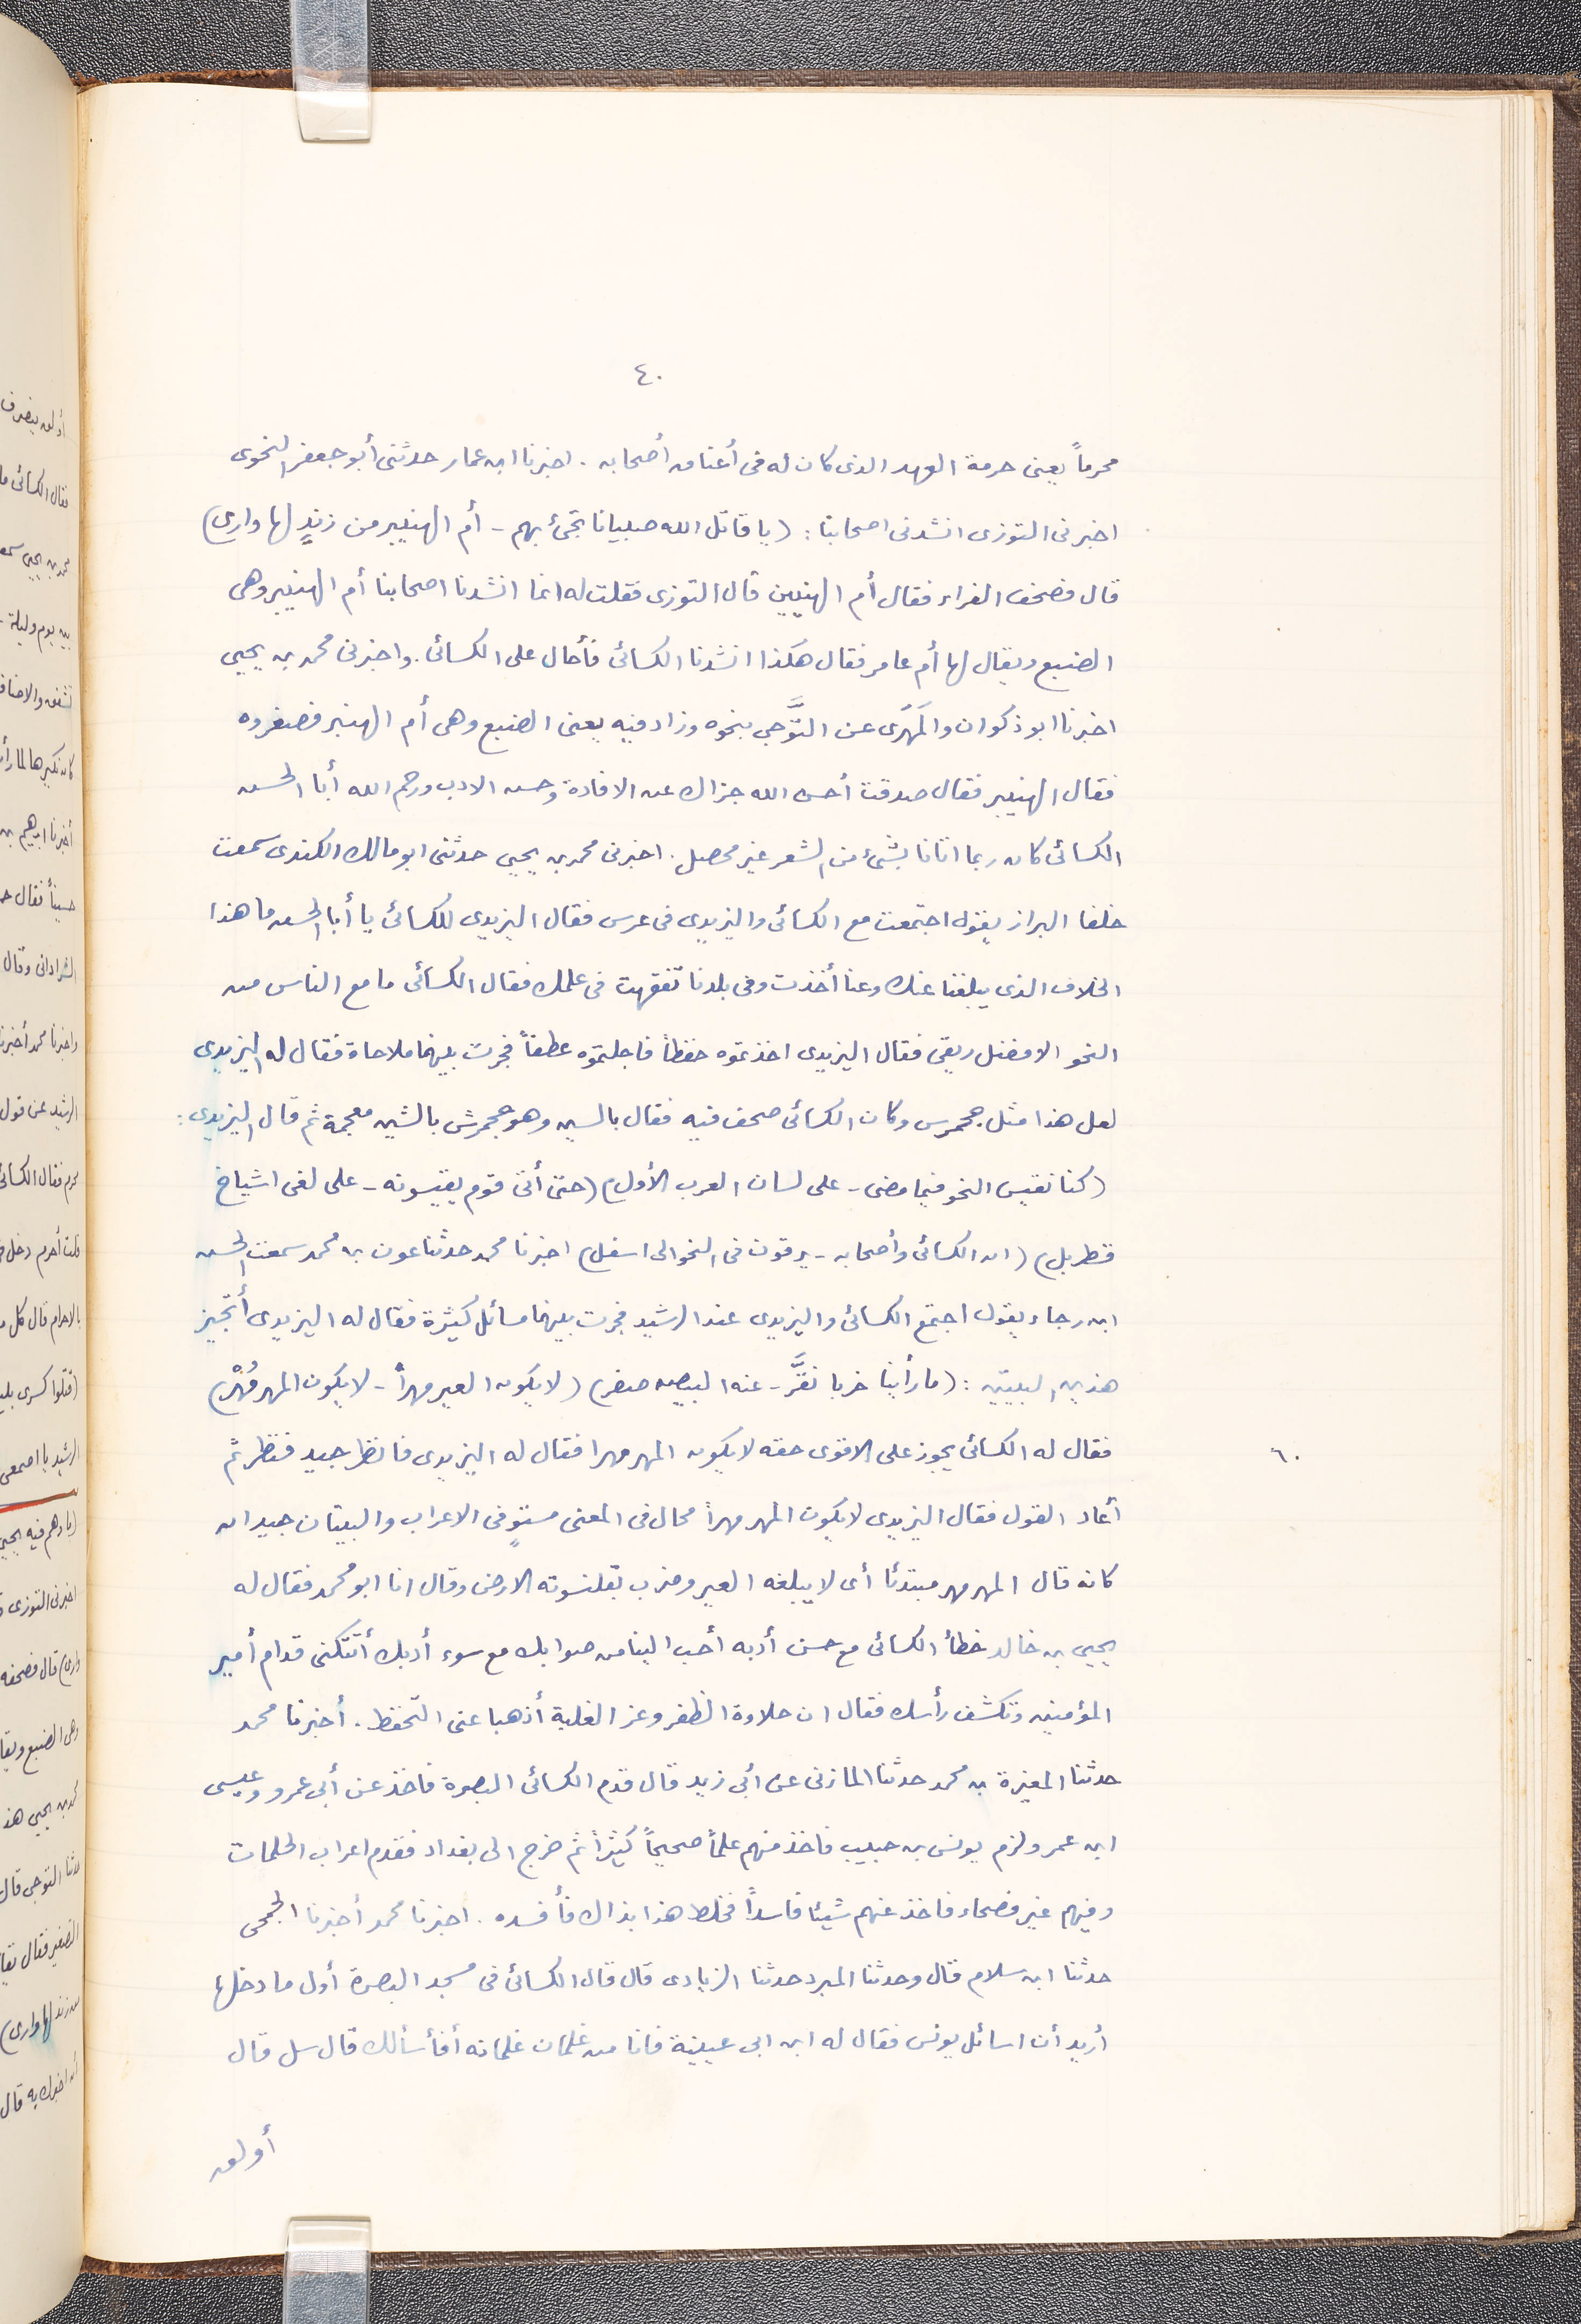 ٤٠
محرماً يعنى حرمة العهد الذى كان له فى أعناق أصحابه . اخبرنا ابن عمار حدثنى أبو جعفر النحوى
اخبرنى التوزى انشدنى اصحابنا : (يا قاتل الله صبيانا تجئ بهم - أم الهنيبر من زندٍ لها وارى)
قال فصحف الفراء فقال أم الهنيبين قال التوزى فقلت له انما انشدنا اصحابنا أم الهنيبر وهى
الضبع ويقال لها أم عامر فقال هكذا انشدنا الكسائى فأحال على الكسائى . واخبرنى محمد بن يحيى
اخبرنا ابو ذكوان والمَهرَى عن التوَّجى بنحوه وزاد فيه يعنى الضبع وهى أم الهنبر فصغروه
فقال الهنيبر فقال صدقت أحسن الله جزاك عن الافادة وحسن الادب ورحم الله أبا الحسن
الكسائى كان ربما اتانا بشئ من الشعر غير محصل . اخبرنى محمد بن يحيى حدثنى ابو مالك الكندى سمعت
خلفا البزاز يقول اجتمعت مع الكسائى واليزيدى فى عرس فقال اليزيدى للكسائى يا أبا الحسن ما هذا
الخلاف الذى يبلغنا عنك وعنا أخذت وفى بلدنا تفقهت فى علمك فقال الكسائى ما مع الناس من
النحو الا فضل ريقى فقال اليزيدى اخذتموه حفظاً فاجلتموه عطفاً فجرت بينهما ملاحاة فقال له اليزيدى
لعل هذا مثل جحمرس وكان الكسائى صحف فيه فقال بالسين وهو جحمرش بالشين معجمة ثم قال اليزيدى :
(كنا نقيس النحو فيما مضى - على لسان العرب الأول) (حتى أتى قوم يقيسونه - على لغى اشياخ
قطربل) (ان الكسائى وأصحابه - يرقون فى النحو الى اسفل) اخبرنا محمد حدثنا عون بن محمد سمعت الحسن
ابن رجاء يقول اجتمع الكسائى واليزيدى عند الرشيد فجرت بينهما مسائل كثيرة فقال له اليزيدى أتجيز
هذين البيتين : (ما رأينا خربا نقَّر - عنه البيض صقر) (لا يكون العير مهراً - لا يكون المهر مُهْر)
فقال له الكسائى يجوز على الاقوى حقه لا يكون المهر مهرا فقال له اليزيدى فانظر جيد فنظر ثم
٦٠
أعاد القول فقال اليزيدى لا يكون المهر مهراً محال فى المعنى مستوٍ فى الاعراب والبيتان جيدان
كانه قال المهر مهر مبتدئا أى لا يبلغه العير وضرب بقلنسوته الارض وقال انا ابو محمد فقال له
يحيى بن خالد خطأ الكسائى مع حسن أدبه أحب الينا من صوابك مع سوء أدبك أتتكنى قدام أمير
المؤمنين وتكشف رأسك فقال ان حلاوة الظفر وعز الغلبة أذهبا عنى التحفظ . أخبرنا محمد
حدثنا المغيرة بن محمد حدثنا المازنى عن أبى زيد قال قدم الكسائى البصرة فاخذ عن أبى عمرو وعيسى
ابن عمر ولزم يونس بن حبيب فاخذ منهم علماً صحيحاً كثيراً ثم خرج الى بغداد فقدم اعراب الحلمات
وفيهم غير فصحاء فاخذ عنهم شيئا فاسداً فخلط هذا بذاك فأفسده . اخبرنا محمد أخبرنا الجمحى
حدثنا ابن سلام قال وحدثنا المبرد حدثنا الزيادى قال قال الكسائى فى مسجد البصرة أول ما دخلها
أريد أن اسائل يونس فقال له ابن ابى عيينة فانا من غلمان غلمانه أفأسألك قال سل قال
أولق